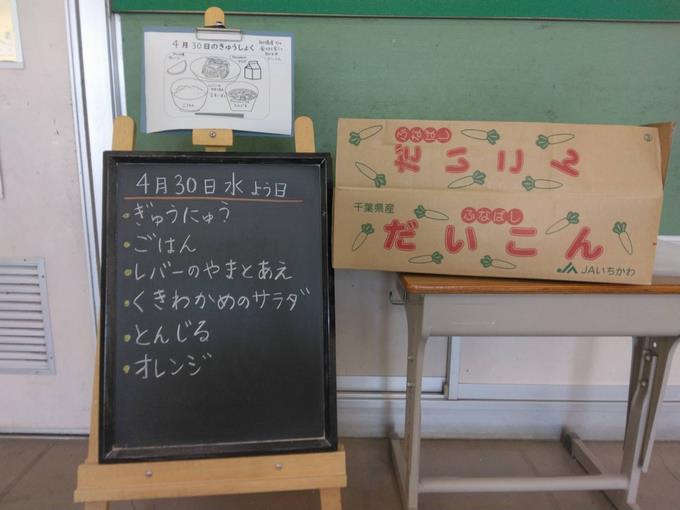 4月30日のきゅうしょく
ごはん
とんじる
4月30日水よう日
ぎゅうにゅう
ごはん
レバーのやまとあえ
くきわかめのサラダ
とんじる
オレンジ
ふなばし
だいこん
千葉県産
ふなばし
だいこん
JAいちかわ